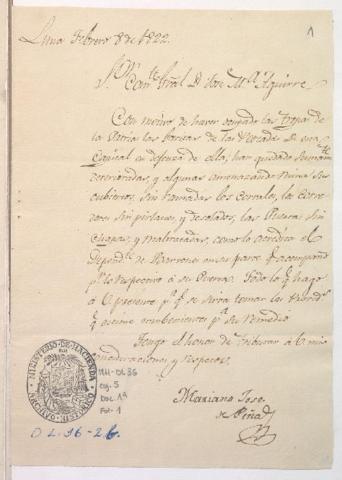 Lima Febrero 8 de 1822.
1
Sor. Conte. Gral. D. José Ma. Aguirre
Con motivo de haver ocupado las tropas de
la Patria las Garitas de las Portadas de esta
Capital en defenza de ella, han quedado sumamte.
deterioradas, y algunas amenazando ruina sus
cubiertos, sin ramadas los corrales, los corre-
dores sin pilares, y desolados, las Puertas sin
chapas, y maltratadas, como lo acredita el
Dependte. de Barrones en su parte q. acompaño
pr. lo respectivo á su Puerta. Todo lo q. hago
á V. presente pa. q. se sirva tomar las Provids.
q. estime combenientes pa. su remedio
Tengo el honor de tributar á V. mis
concideraciones y respetos.
Mariano Jose
de Piña
MINISTERIO DE HACIENDA
ARCHIVO HISTORICO
MH-OL 36
Caj. 5
Doc. 1a
Fol. 1
O. L. 36-26.